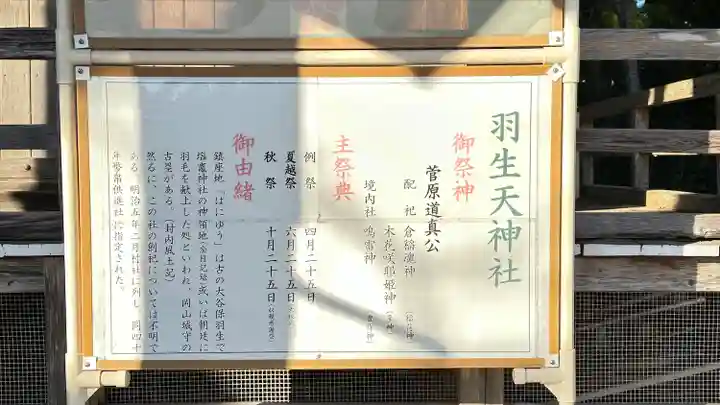 羽生天神社
御祭神
菅原道真公
配祀 倉稲魂神
木花咲耶姫神
境内社 鳴雷神
主祭典
例祭 四月二十五日
夏越祭 六月二十五日
秋祭 十月二十五日
御由緒
鎮座地「はにゅう」は古の大谷保羽生で
塩竈神社の神領地(余目記録)或いは朝廷に
羽毛を献上した処といわれ、岡山城守の
古塁がある。(封内風土記)
然るに、この社の創祀については不明で
ある。明治五年二月村社に列し、同四十
年幣帛供進社に指定された。